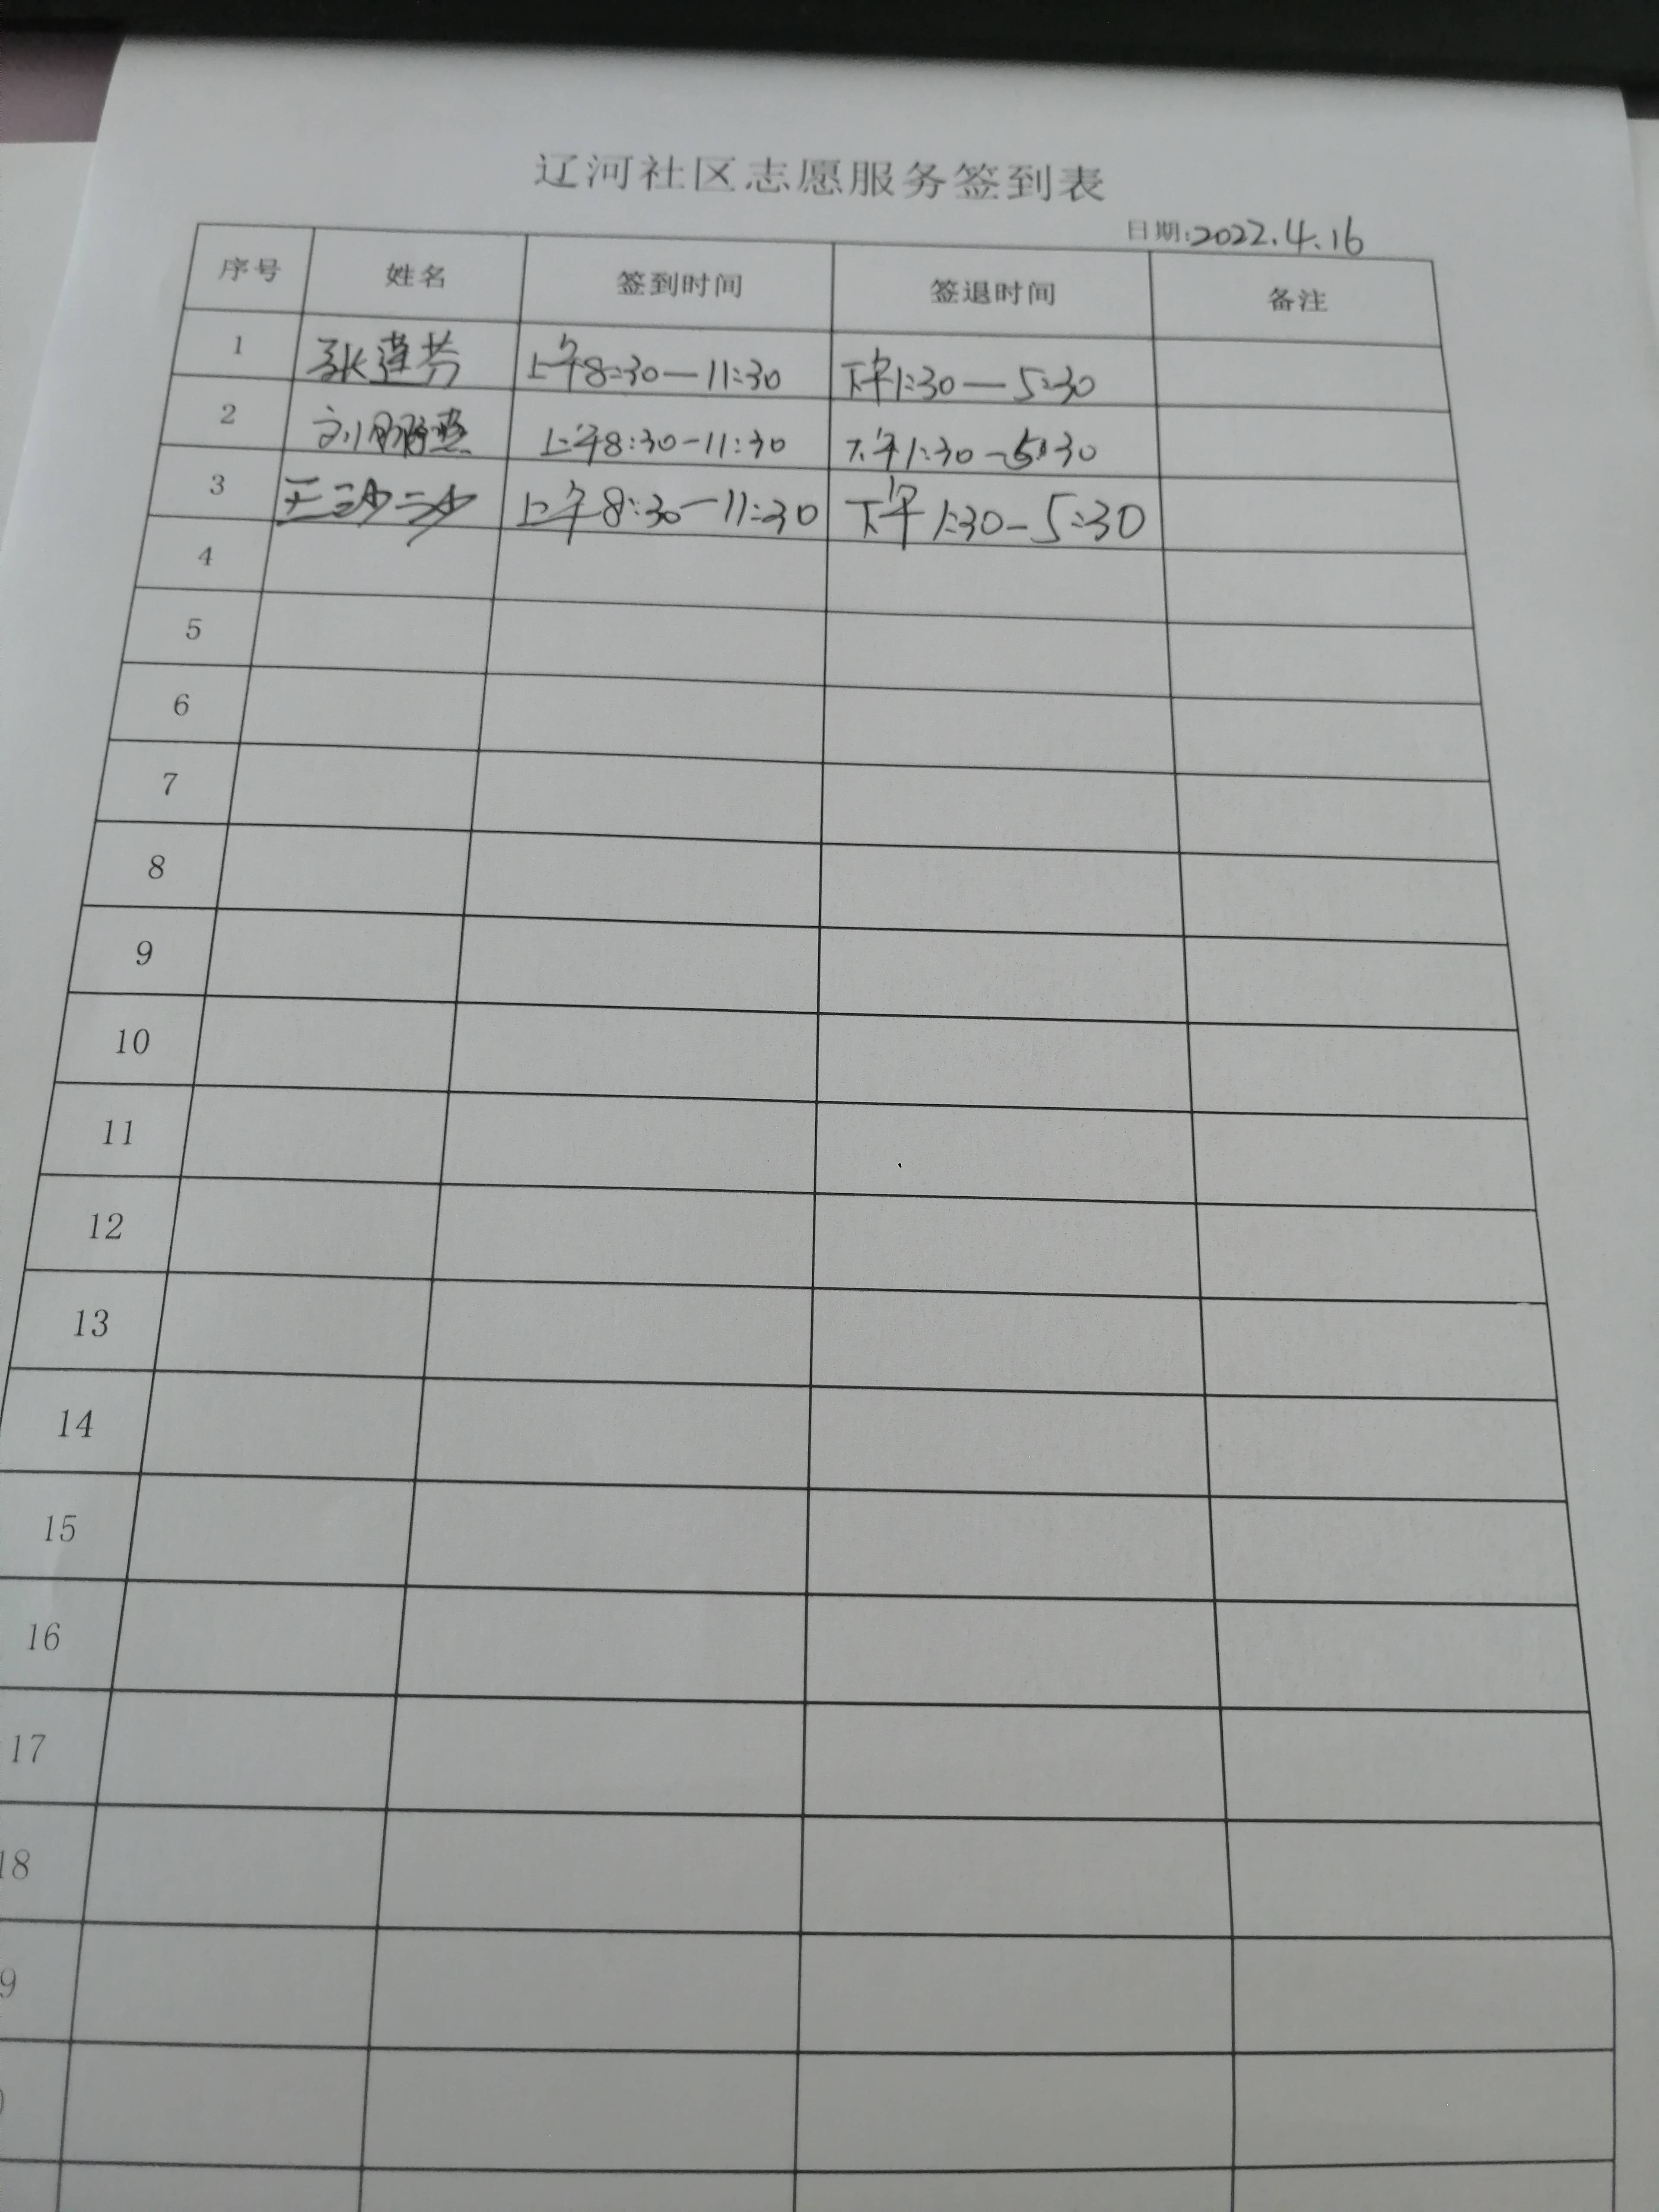 辽河社区志愿服务签到表
日期:2022.4.16
序号 姓名 签到时间 签退时间 备注
1 张莲芳 上午8:30—11:30 下午1:30—5:30
2 刘 上午8:30-11:30 下午1:30-5:30
3 王 上午8:30-11:30 下午1:30-5:30
4
5
6
7
8
9
10
11
12
13
14
15
16
17
18
9